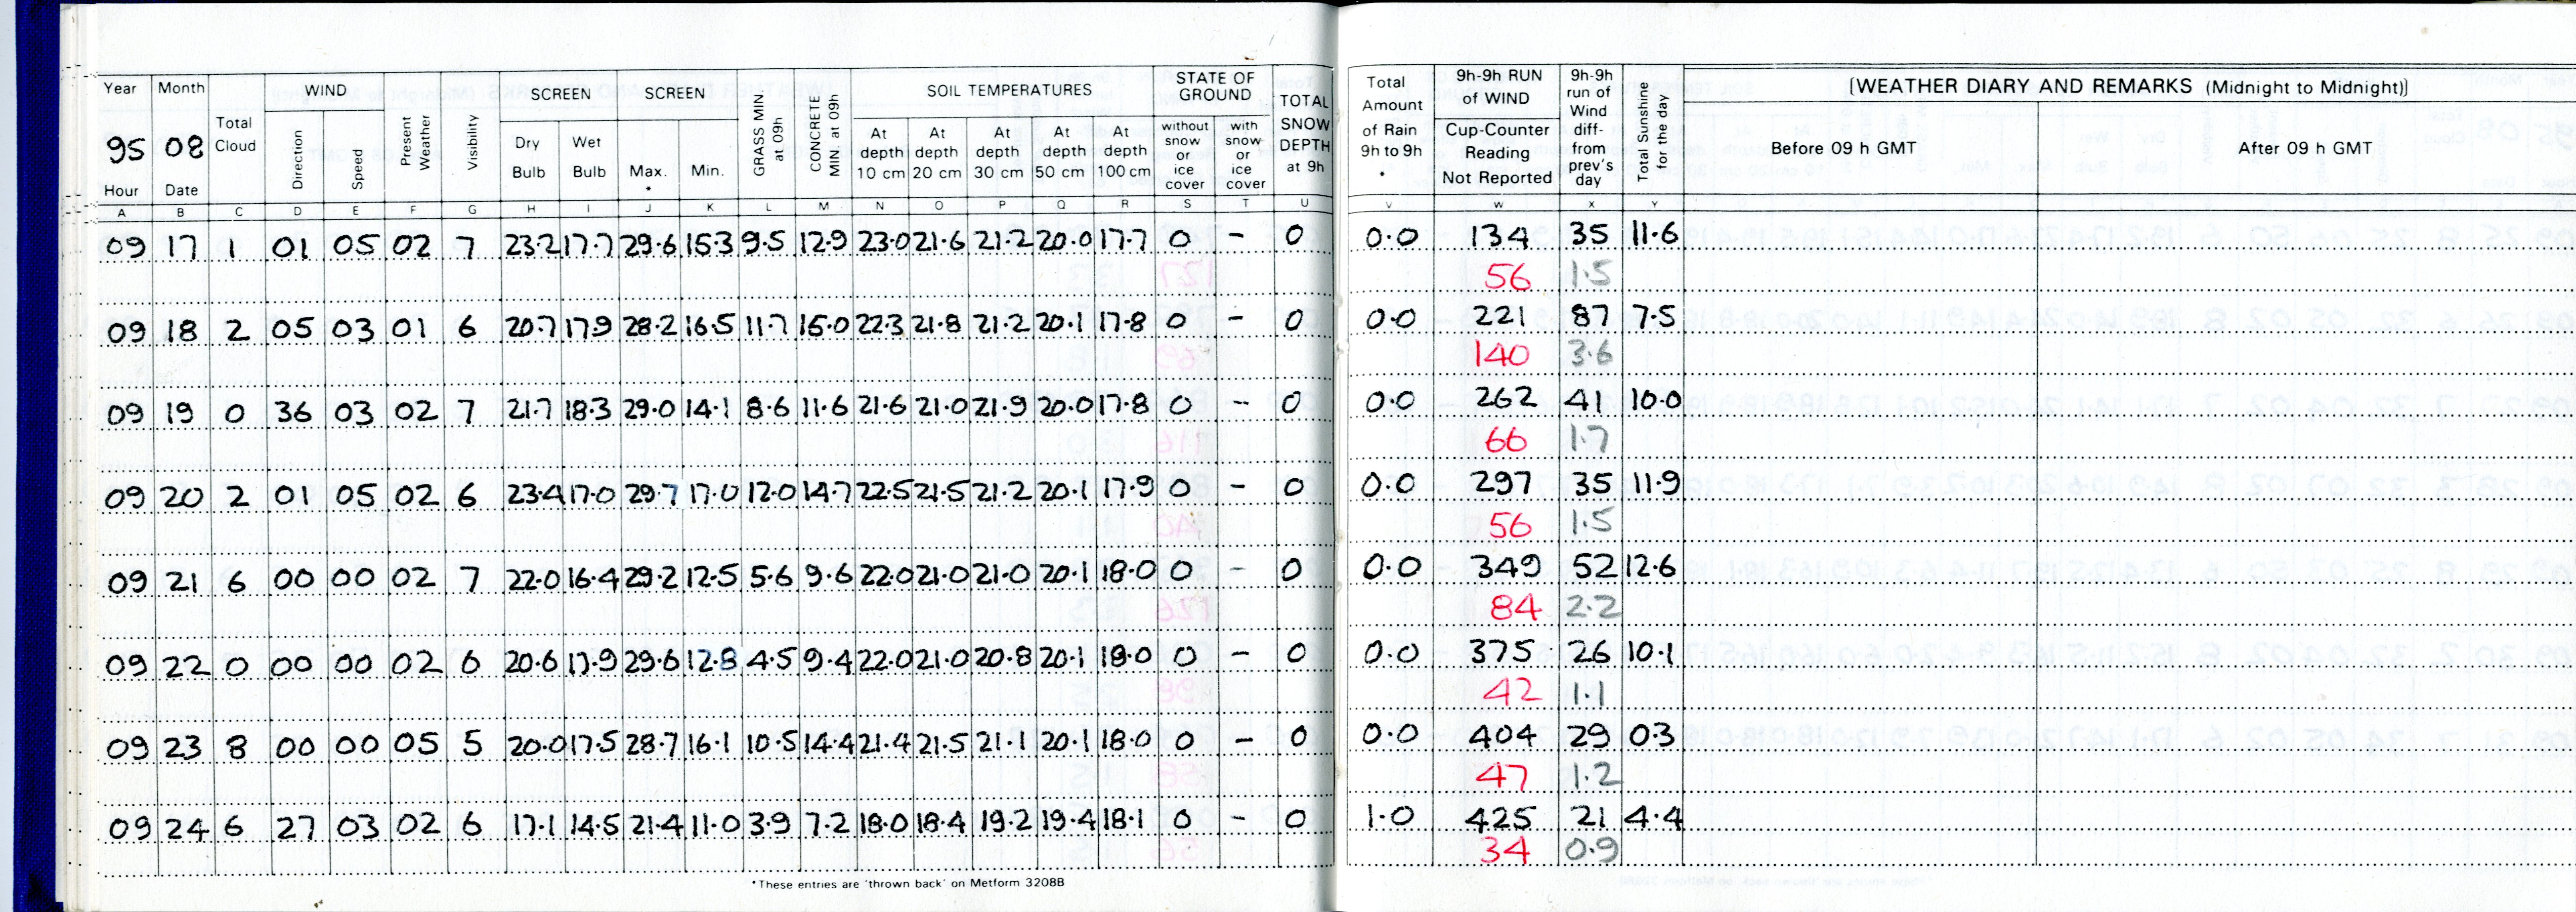 Year Month WIND SCREEN SCREEN SOIL TEMPERATURES STATE OF GROUND Total Amount of Rain 9h to 9h * 9h-9h RUN of WIND 9h-9h run of Wind diff- from prev's day Total Sunshine for the day [WEATHER DIARY AND REMARKS (Midnight to Midnight)]
95 08 Total Cloud Direction Speed Present Weather Visibility Dry Bulb Wet Bulb Max. * Min. GRASS MIN at 09h CONCRETE MIN at 09h At depth 10 cm At depth 20 cm At depth 30 cm At depth 50 cm At depth 100 cm without snow or ice cover with snow or ice cover TOTAL SNOW DEPTH at 9h Cup-Counter Reading Not Reported Before 09 h GMT After 09 h GMT
Hour Date
A B C D E F G H I J K L M N O P Q R S T U V W X Y
09 17 1 01 05 02 7 23.2 17.7 29.6 15.3 9.5 12.9 23.0 21.6 21.2 20.0 17.7 0 - 0 0.0 134 35 11.6
56 1.5
09 18 2 05 03 01 6 20.7 17.9 28.2 16.5 11.7 15.0 22.3 21.8 21.2 20.1 17.8 0 - 0 0.0 221 87 7.5
140 3.6
09 19 0 36 03 02 7 21.7 18.3 29.0 14.1 8.6 11.6 21.6 21.0 21.9 20.0 17.8 0 - 0 0.0 262 41 10.0
66 1.7
09 20 2 01 05 02 6 23.4 17.0 29.7 17.0 12.0 14.7 22.5 21.5 21.2 20.1 17.9 0 - 0 0.0 297 35 11.9
56 1.5
09 21 6 00 00 02 7 22.0 16.4 29.2 12.5 5.6 9.6 22.0 21.0 21.0 20.1 18.0 0 - 0 0.0 349 52 12.6
84 2.2
09 22 0 00 00 02 6 20.6 17.9 29.6 12.8 4.5 9.4 22.0 21.0 20.8 20.1 18.0 0 - 0 0.0 375 26 10.1
42 1.1
09 23 8 00 00 05 5 20.0 17.5 28.7 16.1 10.5 14.4 21.4 21.5 21.1 20.1 18.0 0 - 0 0.0 404 29 0.3
47 1.2
09 24 6 27 03 02 6 17.1 14.5 21.4 11.0 3.9 7.2 18.0 18.4 19.2 19.4 18.1 0 - 0 1.0 425 21 4.4
34 0.9
*These entries are 'thrown back' on Metform 3208B